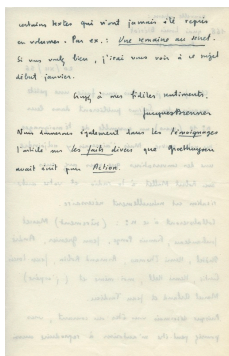 certains textes qui n'ont jamais été repris
en volumes. Par ex. : Une semaine au secret.
Si vous voulez bien, j'irai vous voir à ce sujet
début janvier.
Croyez à mes fidèles sentiments,
Jacques Brenner
Nous aimerions également dans les témoignages
l'article sur les faits divers que
avait écrit pour Action.